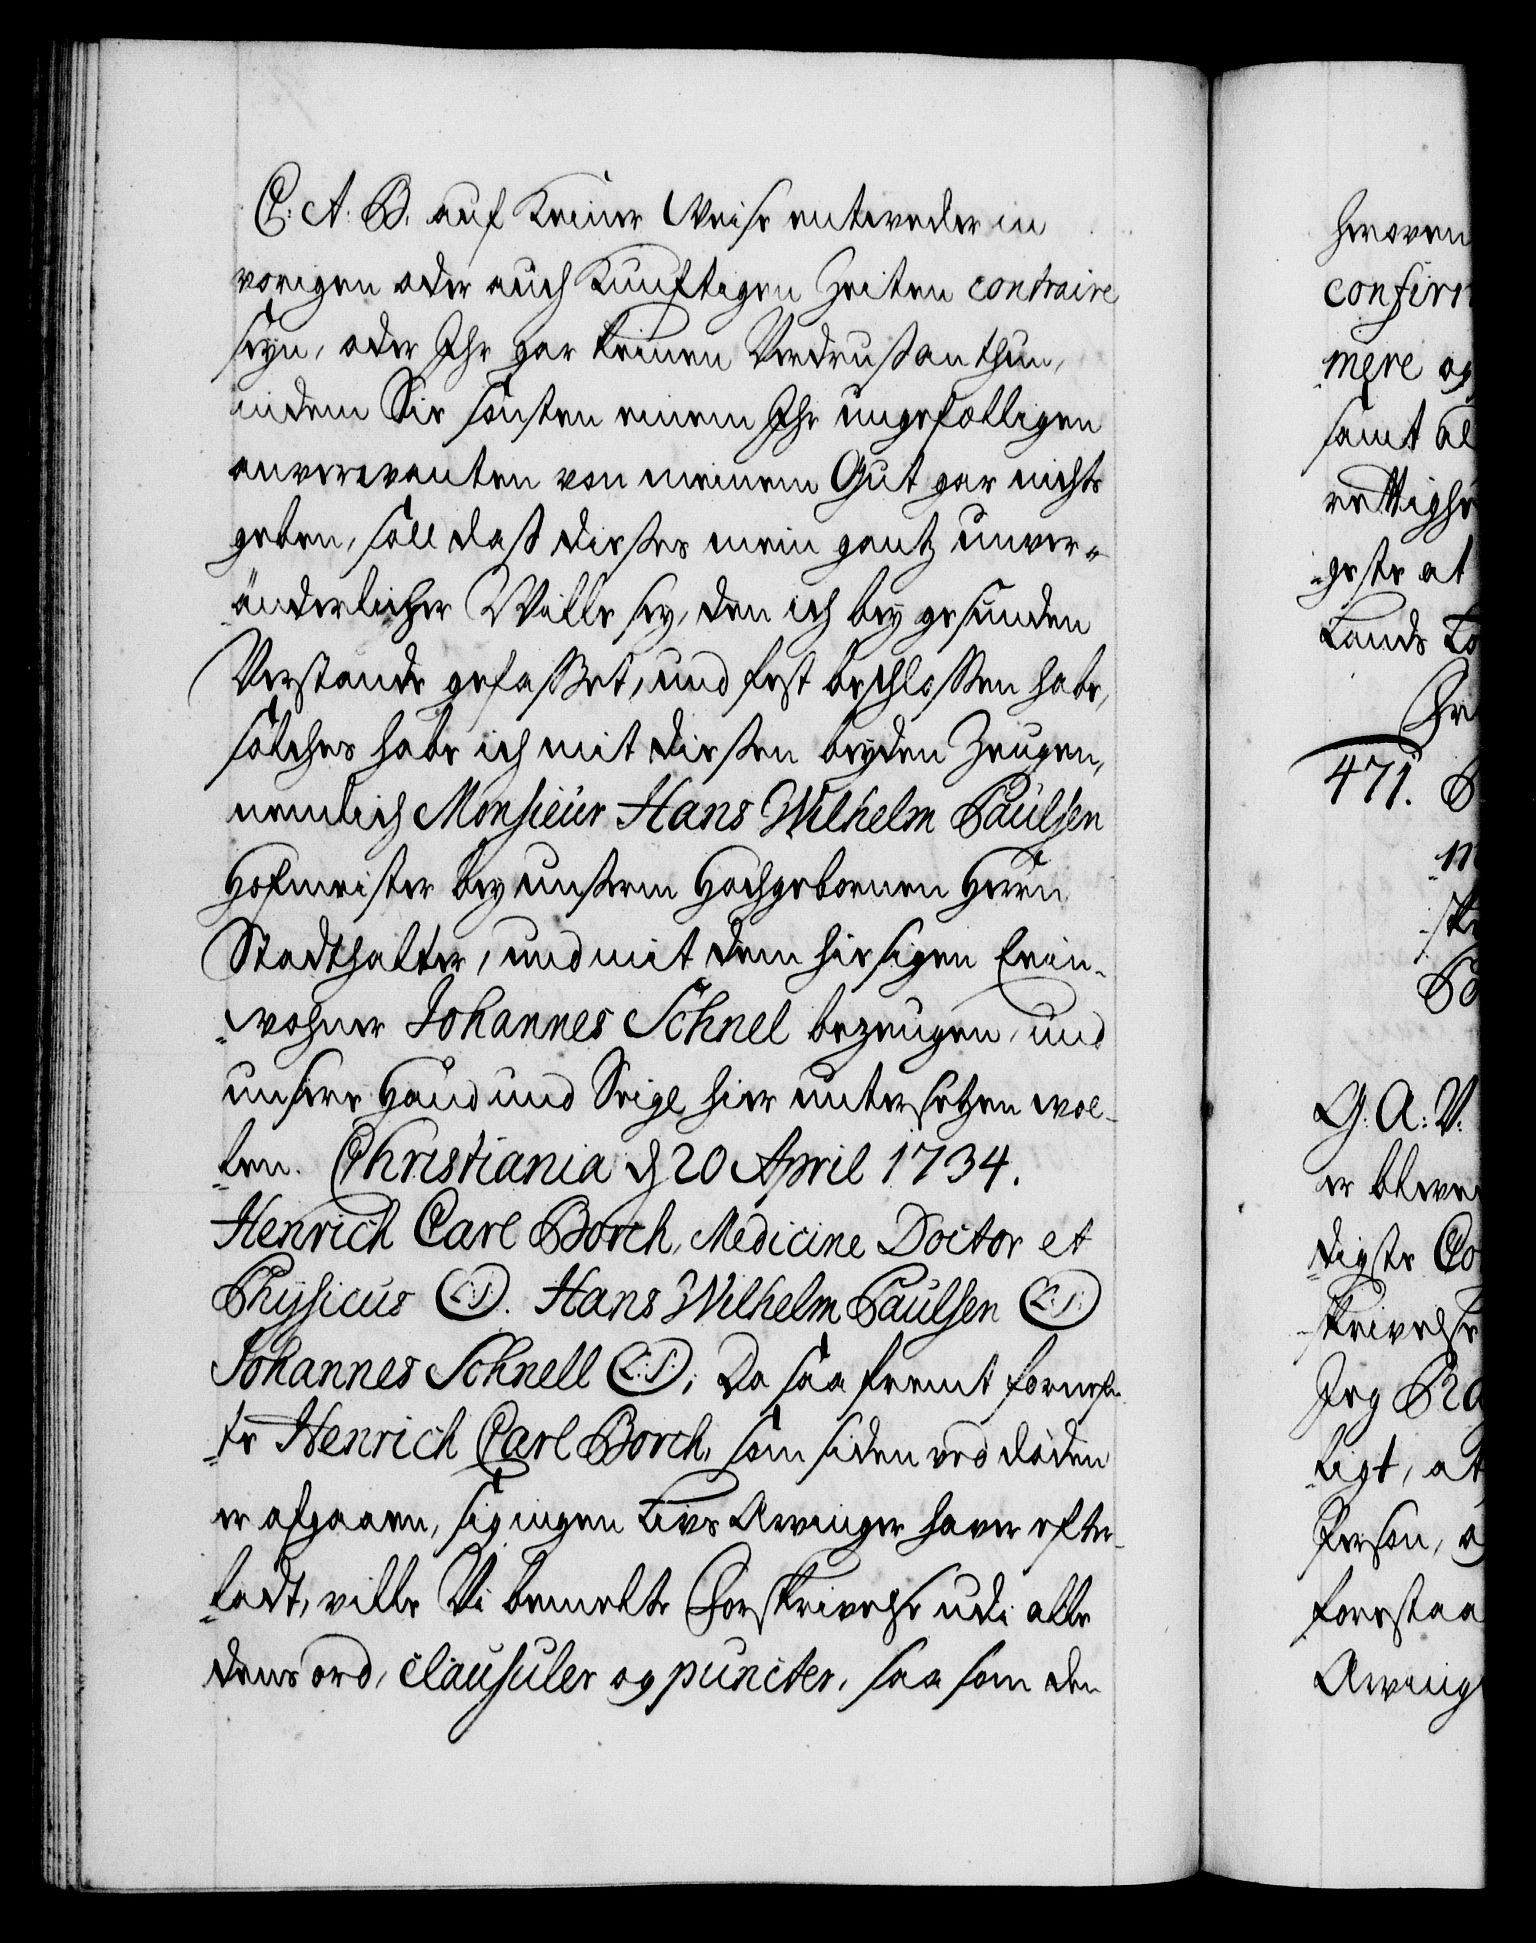 C: A: B. auf Keiner Weise entweder in
vorigen oder auch Kunftigen Zeiten contraire
seyn, oder Ihr gar keinen Verdruß anthun,
indem Sie sonsten einem Ihr ungefälligen
anverwanten von meinem Gut gar nichts
geben, soll daß dießes mein gantz unver-
änderlicher Wille sey, den ich bey gesunden
Verstande gefaßet, und fest beschloßen habe,
solches habe ich mit dießen beyden Zeugen,
nemlich Monsieur Hans Wilhelm Paulsen
Hofmeister bey unßerm Hochgebornen Herrn
Stadthalter, und mit dem hiesigen Ein-
wohner Johannes Schnel bezeugen, und
unsere Hand und Seigl hier untersetzen wol-
len. Christiania d 20 April 1734.
Henrich Carl Borch, Medicine Doctor et
Physicus (L:S:). Hans Wilhelm Paulsen (L:S:)
Johannes Schnell (L:S:); Da saafremt fornefn-
te Henrich Carl Borch, som siden ved döden
er afgaaen, sig ingen Livs Arvinger haver efter-
ladt, ville Vi bemelte Forskrivelse udi alle
dens ord, clausuler og puncter, saa som den
heroven
confirm
mere og
samt al
rettighe
geste at
Lands Lo
471.
G: A: V:
er bleve
digste Co
skrivelse
ligt, at
Person, o
forestaa
Arving